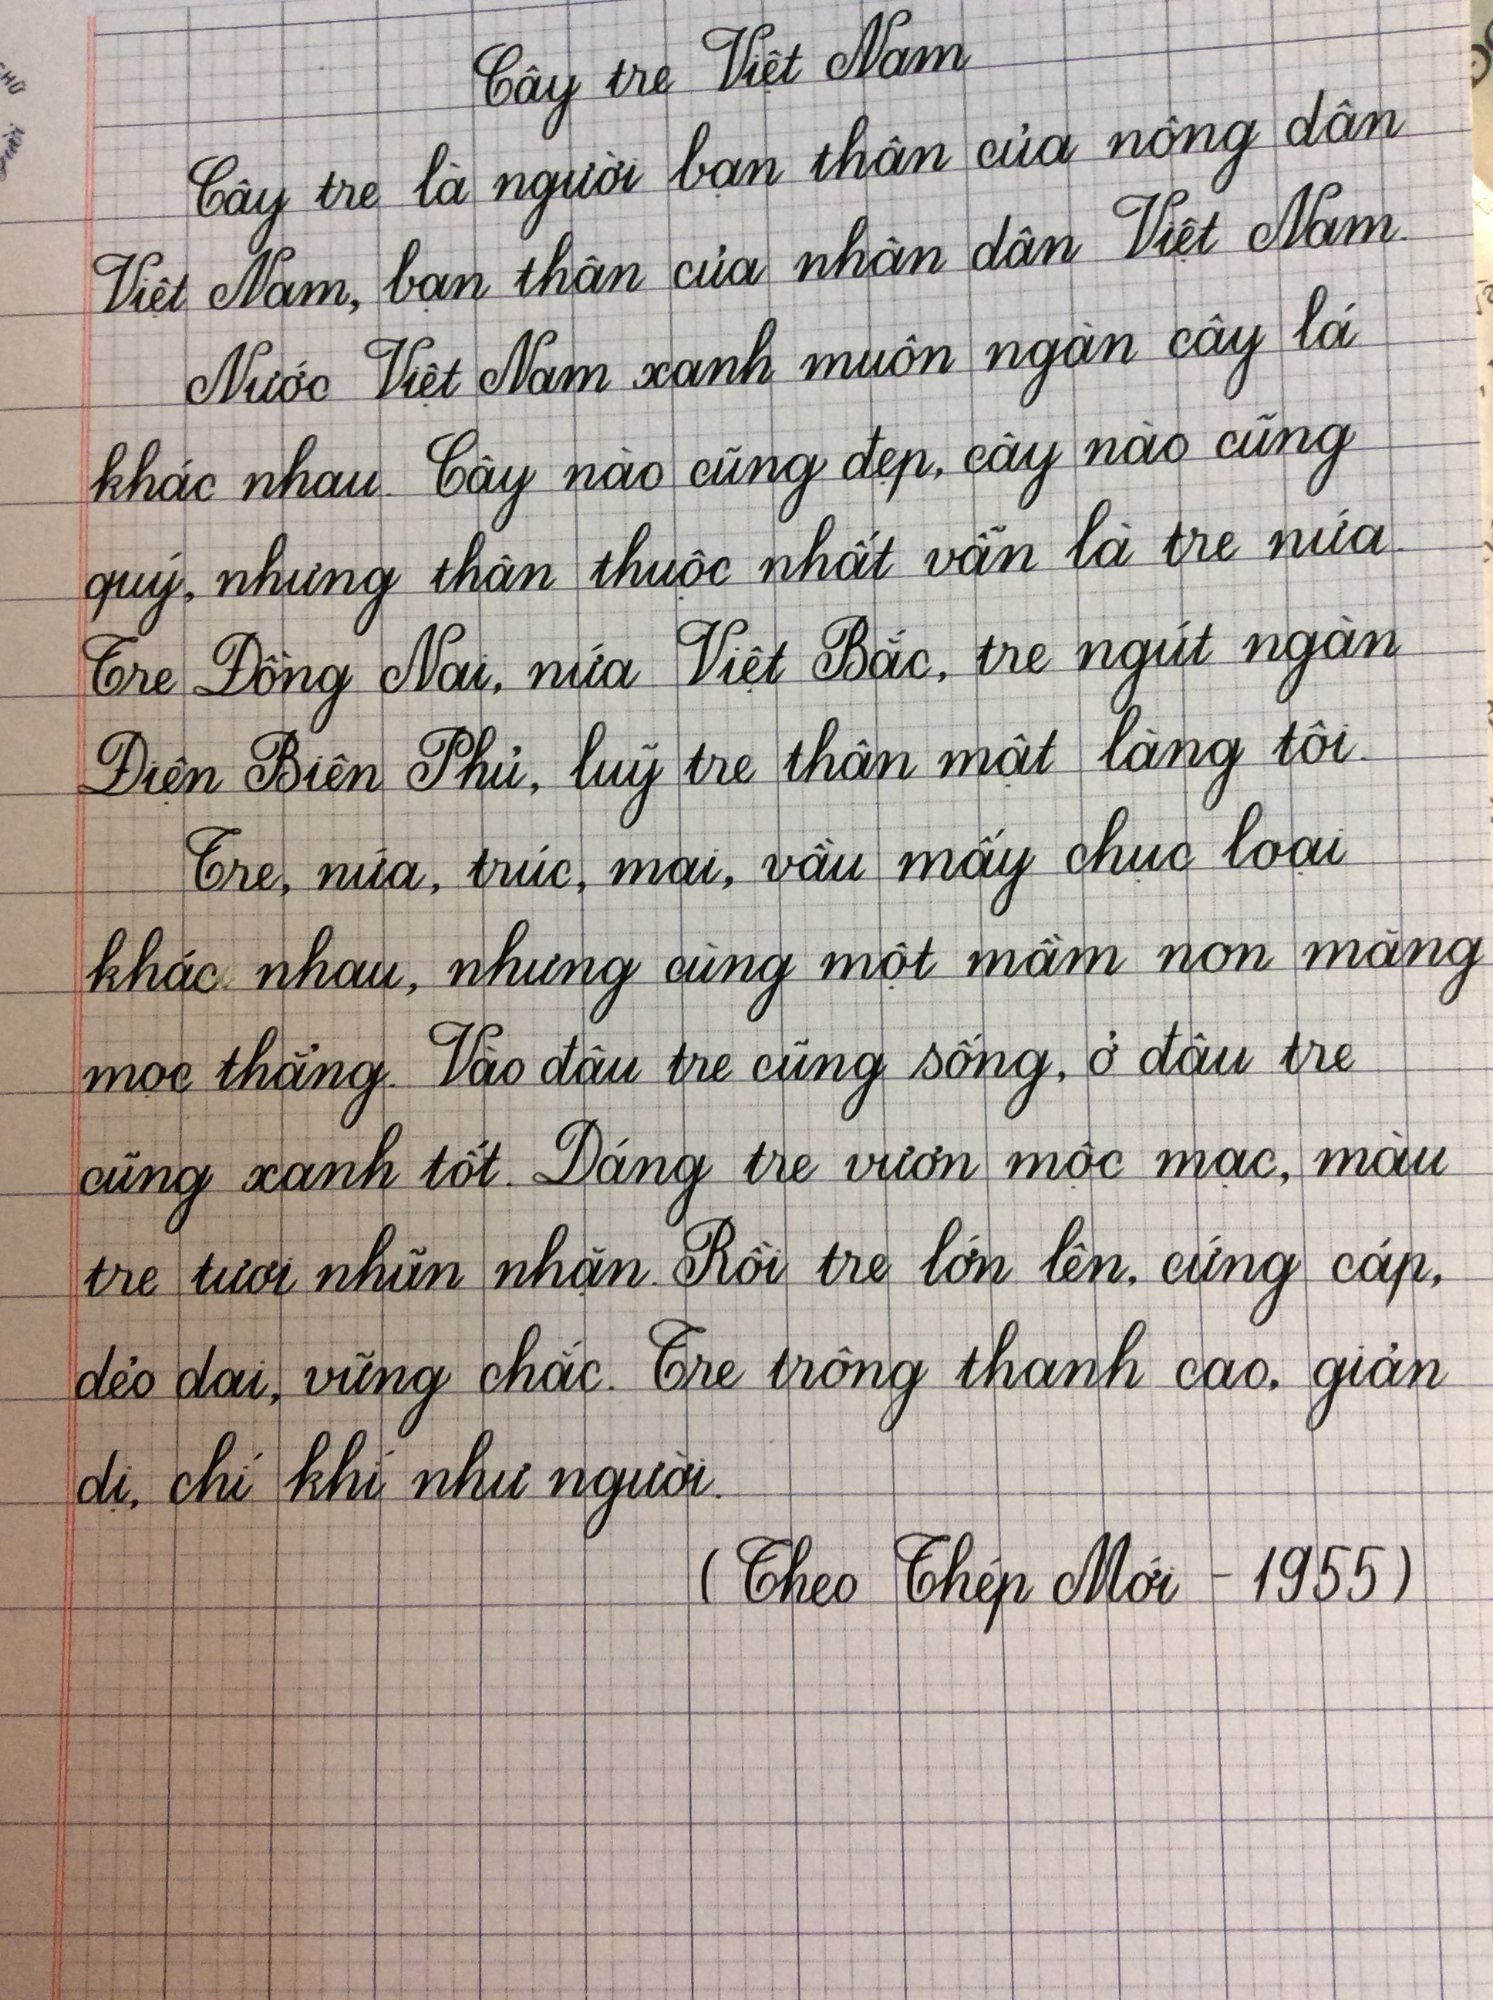 Cây tre Việt Nam
Cây tre là người bạn thân của nông dân
Việt Nam, bạn thân của nhân dân Việt Nam.
Nước Việt Nam xanh muôn ngàn cây lá
khác nhau. Cây nào cũng đẹp, cây nào cũng
quý, nhưng thân thuộc nhất vẫn là tre nứa.
Tre Đồng Nai, nứa Việt Bắc, tre ngút ngàn
Điện Biên Phủ, luỹ tre thân mật làng tôi.
Tre, nứa, trúc, mai, vầu mấy chục loại
khác nhau, nhưng cùng một mầm non măng
mọc thẳng. Vào đâu tre cũng sống, ở đâu tre
cũng xanh tốt. Dáng tre vươn mộc mạc, màu
tre tươi nhũn nhặn. Rồi tre lớn lên, cứng cáp,
dẻo dai, vững chắc. Tre trông thanh cao, giản
dị, chí khí như người.
(Theo Thép Mới - 1955)